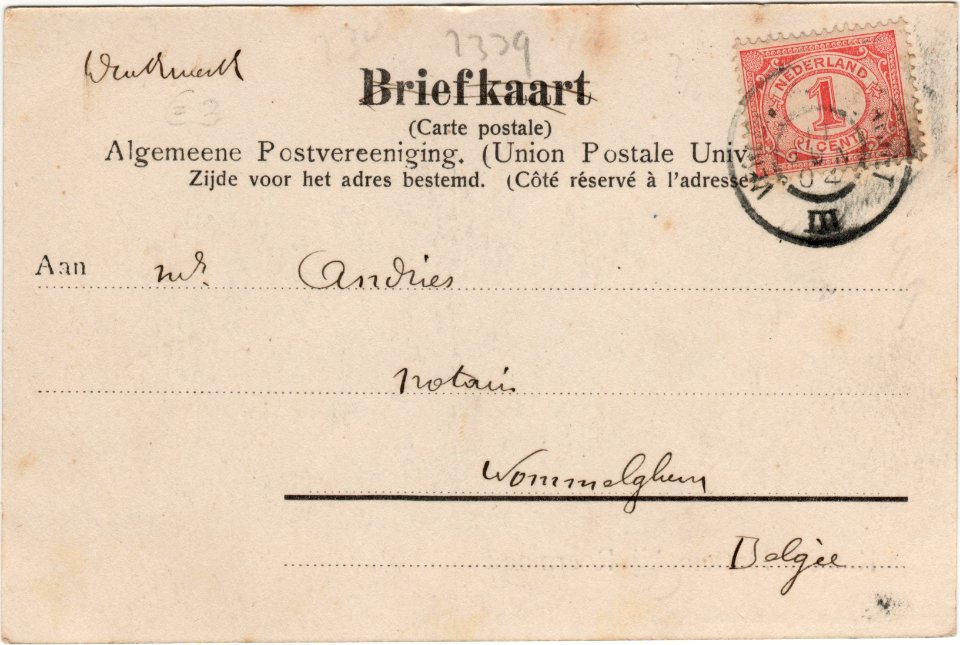 2339
Drukwerk
£3
Briefkaart
(Carte postale)
Algemeene Postvereeniging. (Union Postale Univ
Zijde voor het adres bestemd. (Côté réservé à l'adresse
NEDERLAND
1
1 CENT
04
III
Aan Mr. Andries
notaris
Wommelghem
Belgie